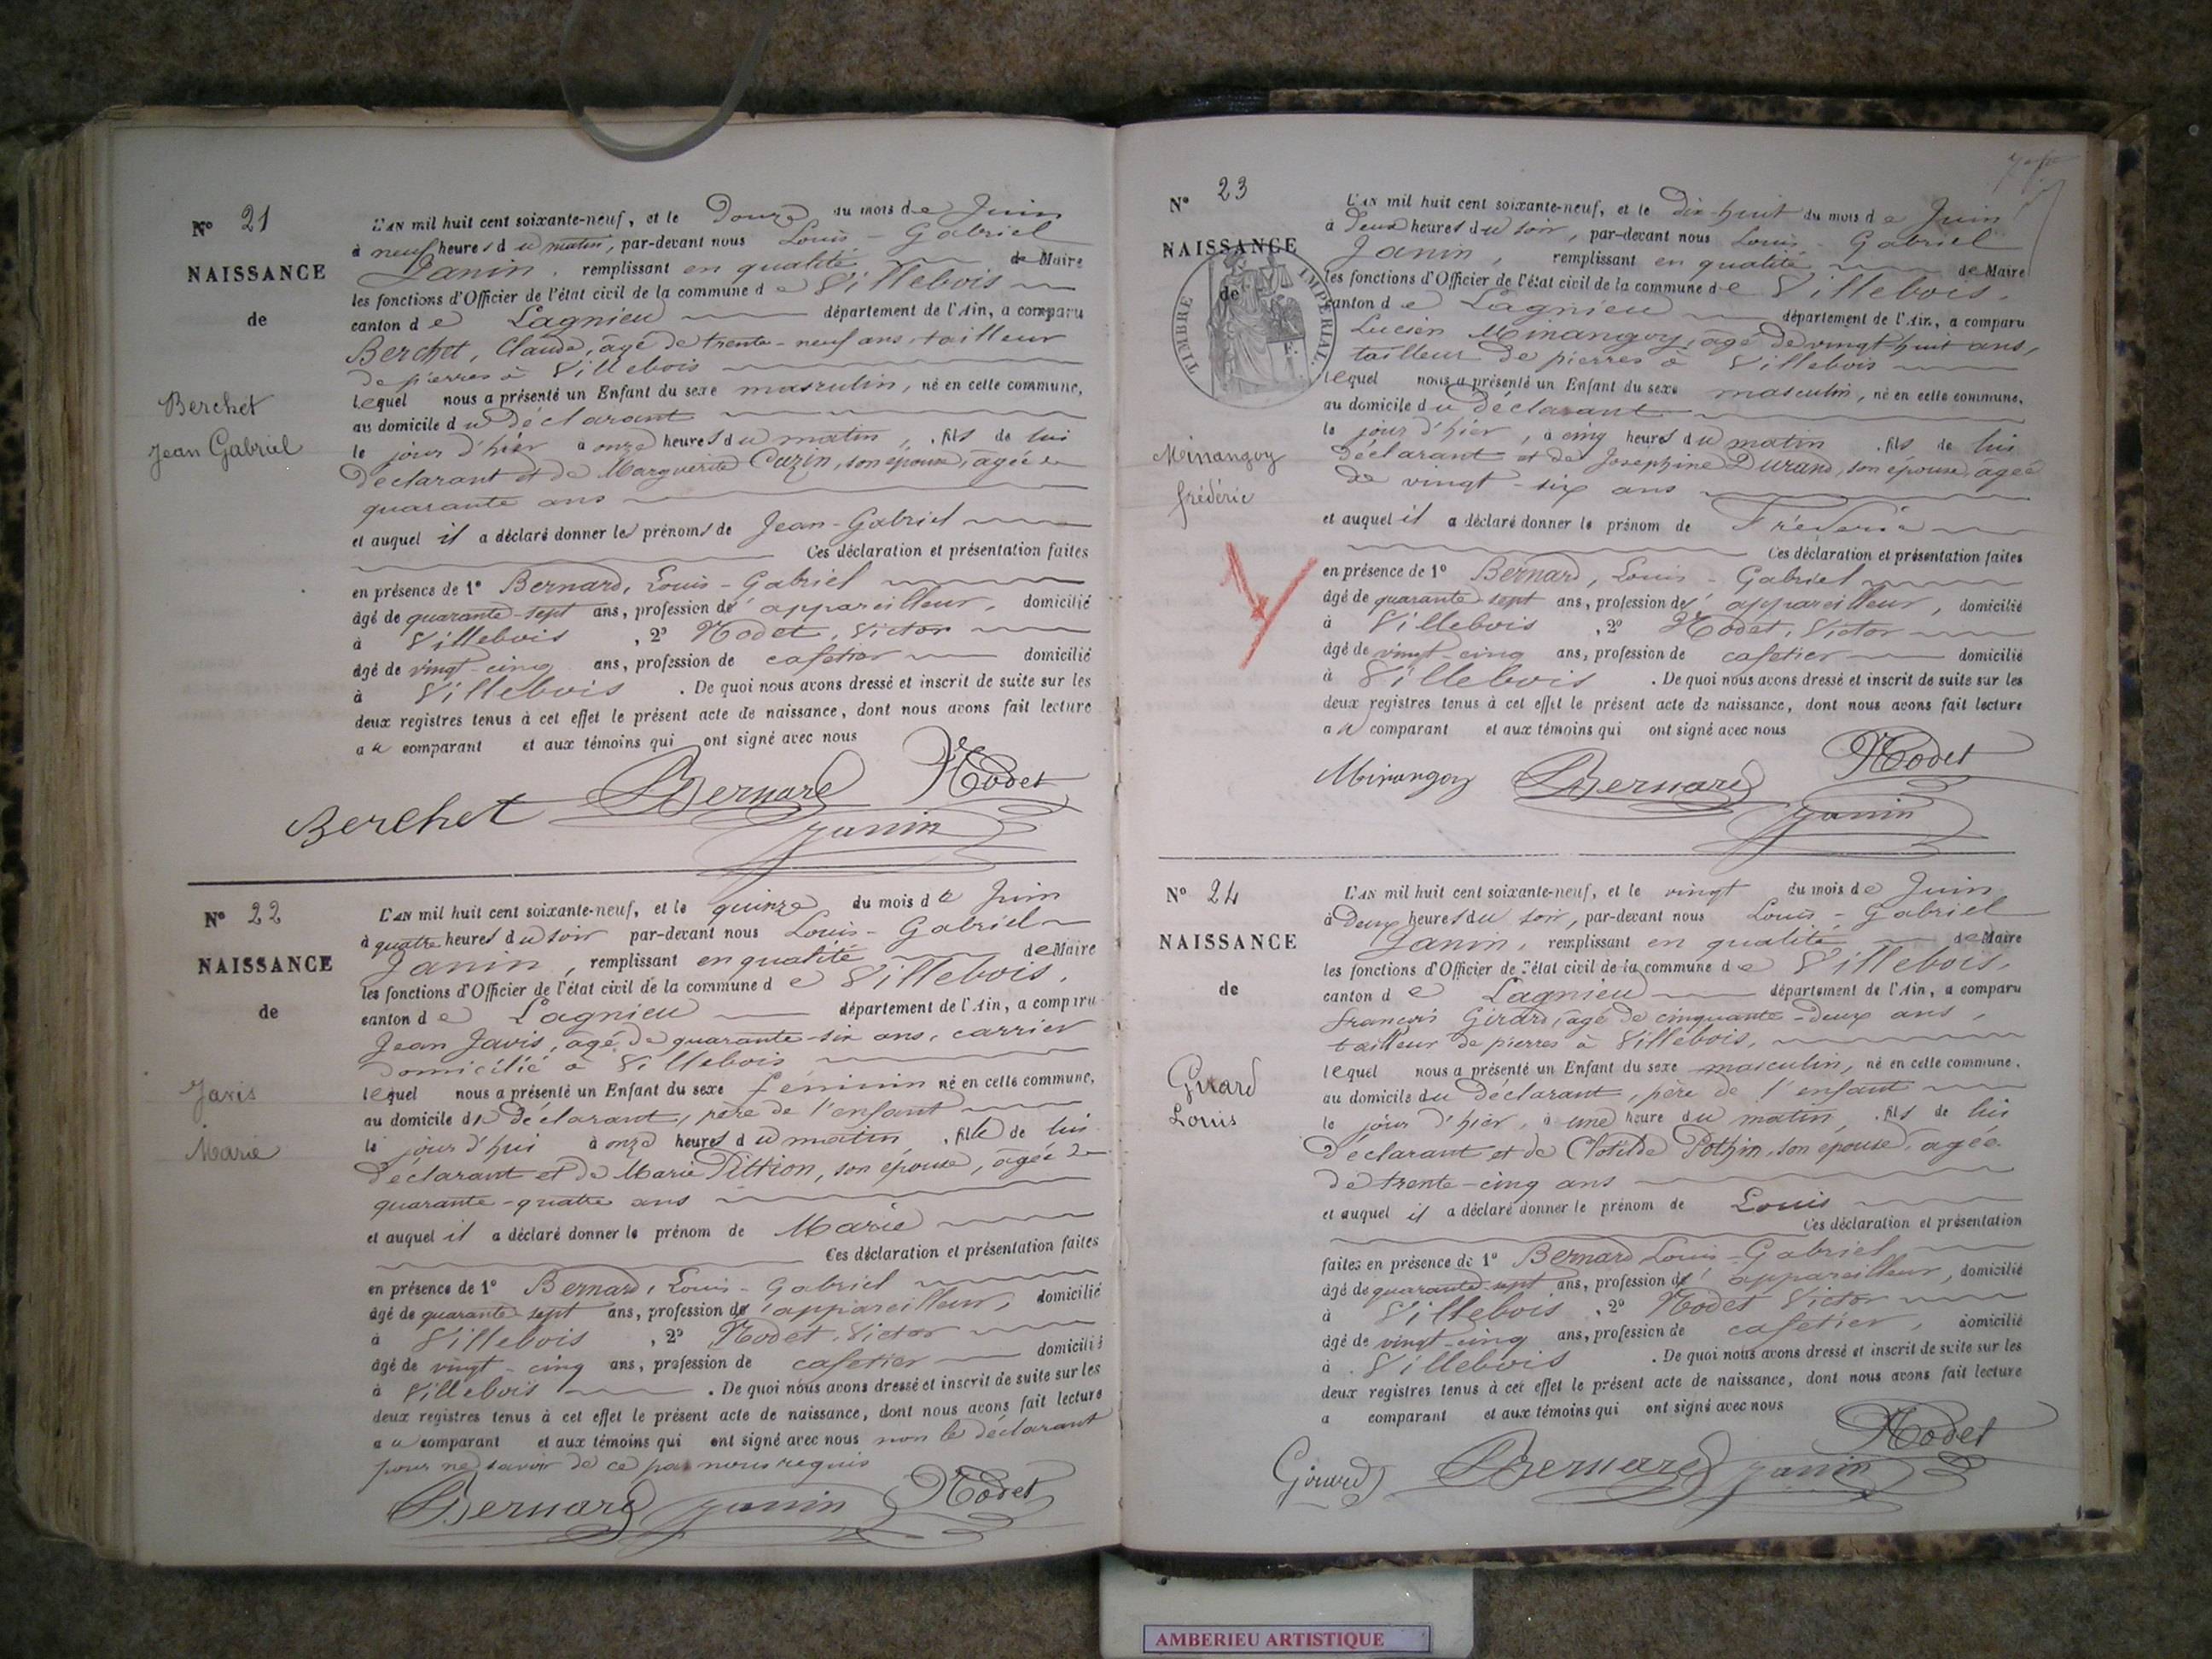 N° 21
NAISSANCE
de
Berchet
Jean Gabriel
L'AN mil huit cent soixante-neuf, et le Douze du mois de Juin
à neuf heures du matin, par-devant nous Louis-Gabriel
Janin, remplissant en qualité de Maire
les fonctions d'Officier de l'état civil de la commune de Villebois
canton de Lagnieu département de l'Ain, a comparu
Berchet, Claude, âgé de trente-neuf ans, tailleur
de pierres à Villebois
lequel nous a présenté un Enfant du sexe masculin, né en cette commune,
au domicile du déclarant
le jour d'hier à onze heures du matin, fils de lui
déclarant et de Marguerite Cuzin, son épouse, âgée de
quarante ans
et auquel il a déclaré donner les prénoms de Jean-Gabriel
Ces déclaration et présentation faites
en présence de 1° Bernard, Louis-Gabriel
âgé de quarante-sept ans, profession d'appareilleur, domicilié
à Villebois, 2° Rodet, Victor
âgé de vingt-cinq ans, profession de cafetier domicilié
à Villebois. De quoi nous avons dressé et inscrit de suite sur les
deux registres tenus à cet effet le présent acte de naissance, dont nous avons fait lecture
au comparant et aux témoins qui ont signé avec nous
Berchet Bernard Rodet
Janin
N° 22
NAISSANCE
de
Javis
Marie
L'AN mil huit cent soixante-neuf, et le quinze du mois de Juin
à quatre heures du soir par-devant nous Louis-Gabriel
Janin, remplissant en qualité de Maire
les fonctions d'Officier de l'état civil de la commune de Villebois,
canton de Lagnieu département de l'Ain, a comparu
Jean Javis, âgé de quarante-six ans, carrier
domicilié à Villebois
lequel nous a présenté un Enfant du sexe féminin né en cette commune,
au domicile du déclarant, père de l'enfant
le jour d'hui à onze heures du matin, fille de lui
déclarant et de Marie Pittion, son épouse, âgée de
quarante-quatre ans
et auquel il a déclaré donner le prénom de Marie
Ces déclaration et présentation faites
en présence de 1° Bernard, Louis-Gabriel
âgé de quarante-sept ans, profession d'appareilleur, domicilié
à Villebois, 2° Rodet, Victor
âgé de vingt-cinq ans, profession de cafetier domicilié
à Villebois. De quoi nous avons dressé et inscrit de suite sur les
deux registres tenus à cet effet le présent acte de naissance, dont nous avons fait lecture
au comparant et aux témoins qui ont signé avec nous non le déclarant
pour ne savoir de ce par nous requis
Bernard Janin Rodet
N° 23
NAISSANCE
de
TIMBRE IMPERIAL
Minangoy
frédéric
L'AN mil huit cent soixante-neuf, et le dix-huit du mois de Juin
à Deux heures du soir, par-devant nous Louis-Gabriel
Janin, remplissant en qualité de Maire
les fonctions d'Officier de l'état civil de la commune de Villebois,
canton de Lagnieu département de l'Ain, a comparu
Lucien Minangoy, âgé de vingt-huit ans,
tailleur de pierres à Villebois
lequel nous a présenté un Enfant du sexe masculin, né en cette commune,
au domicile du déclarant
le jour d'hier, à cinq heures du matin, fils de lui
déclarant et de Josephine Durand, son épouse, âgée
de vingt-six ans
et auquel il a déclaré donner le prénom de Fréderic
Ces déclaration et présentation faites
en présence de 1° Bernard, Louis-Gabriel
âgé de quarante-sept ans, profession d'appareilleur, domicilié
à Villebois, 2° Rodet, Victor
âgé de vingt-cinq ans, profession de cafetier domicilié
à Villebois. De quoi nous avons dressé et inscrit de suite sur les
deux registres tenus à cet effet le présent acte de naissance, dont nous avons fait lecture
au comparant et aux témoins qui ont signé avec nous
Minangoy Bernard Rodet
Janin
N° 24
NAISSANCE
de
Girard
Louis
L'AN mil huit cent soixante-neuf, et le vingt du mois de Juin
à Deux heures du soir, par-devant nous Louis-Gabriel
Janin, remplissant en qualité de Maire
les fonctions d'Officier de l'état civil de la commune de Villebois,
canton de Lagnieu département de l'Ain, a comparu
François Girard, âgé de cinquante-deux ans,
tailleur de pierres à Villebois,
lequel nous a présenté un Enfant du sexe masculin, né en cette commune,
au domicile du déclarant, père de l'enfant
le jour d'hier, à une heure du matin, fils de lui
déclarant et de Clotilde Pothin, son épouse, âgée
de trente-cinq ans
et auquel il a déclaré donner le prénom de Louis
Ces déclaration et présentation
faites en présence de 1° Bernard Louis-Gabriel
âgé de quarante-sept ans, profession d'appareilleur, domicilié
à Villebois, 2° Rodet Victor
âgé de vingt-cinq ans, profession de cafetier, domicilié
à Villebois. De quoi nous avons dressé et inscrit de suite sur les
deux registres tenus à cet effet le présent acte de naissance, dont nous avons fait lecture
a comparant et aux témoins qui ont signé avec nous
Girard Bernard Janin Rodet
AMBERIEU ARTISTIQUE